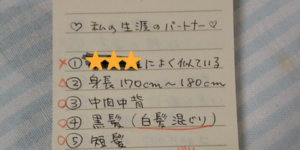 ♡ 私の生涯のパートナー ♡
× ① によく似ている
△ ② 身長170cm～180cm
○ ③ 中肉中背
○ ④ 黒髪（白髪混じり）
○ ⑤ 短髪